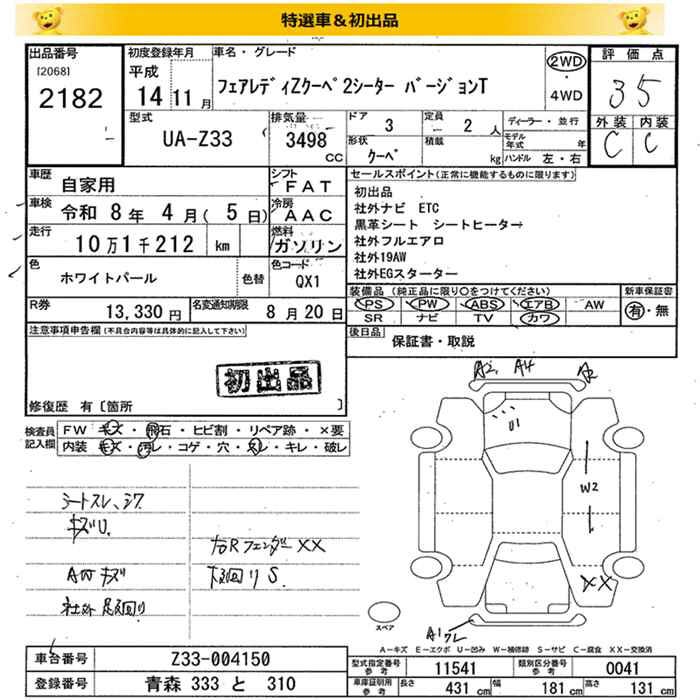 特選車＆初出品
出品番号
[2068]
2182
初度登録年月
平成
14 11月
車名・グレード
フェアレディZクーペ 2シーター バージョンT
2WD
4WD
評価点
35
外装 内装
C C
型式
UA-Z33
排気量
3498
CC
ドア
3
定員
2 人
ディーラー・並行
形状
クーペ
積載
kg
モデル年式 年
ハンドル 左・右
車歴
自家用
シフト
FAT
車検
令和 8年 4月( 5日)
冷房
AAC
走行
10万1千212 km
燃料
ガソリン
色
ホワイトパール
色替
色コード
QX1
R券
13,330 円
名変通知期限
8月20日
セールスポイント(正常に機能するものに限り)
初出品
社外ナビ ETC
黒革シート シートヒーター
社外フルエアロ
社外19AW
社外EGスターター
装備品(純正品に限り○をつけてください)
PS PW ABS エアB AW
SR ナビ TV カワ
新車保証書
有・無
後日品
保証書・取説
注意事項申告欄(不具合内容等は具体的に記入して下さい)
初出品
修復歴 有〔箇所 〕
検査員記入欄
FW キズ・飛石・ヒビ割・リペア跡・×要
内装 キズ・汚レ・コゲ・穴・スレ・キレ・破レ
シートスレ、シワ
キズU.
AWキズ
社外足廻り
右Rフェンダー XX
下廻り S.
A2, A4
A
U1
W2
XX
スペア
A-キズ E-エクボ U-凹み W-補修跡 S-サビ C-腐食 XX-交換済
車台番号
Z33-004150
登録番号
青森 333 と 310
型式指定番号 参考
11541
類別区分番号 参考
0041
車庫証明用 参考
長さ 431 cm
幅 181 cm
高さ 131 cm